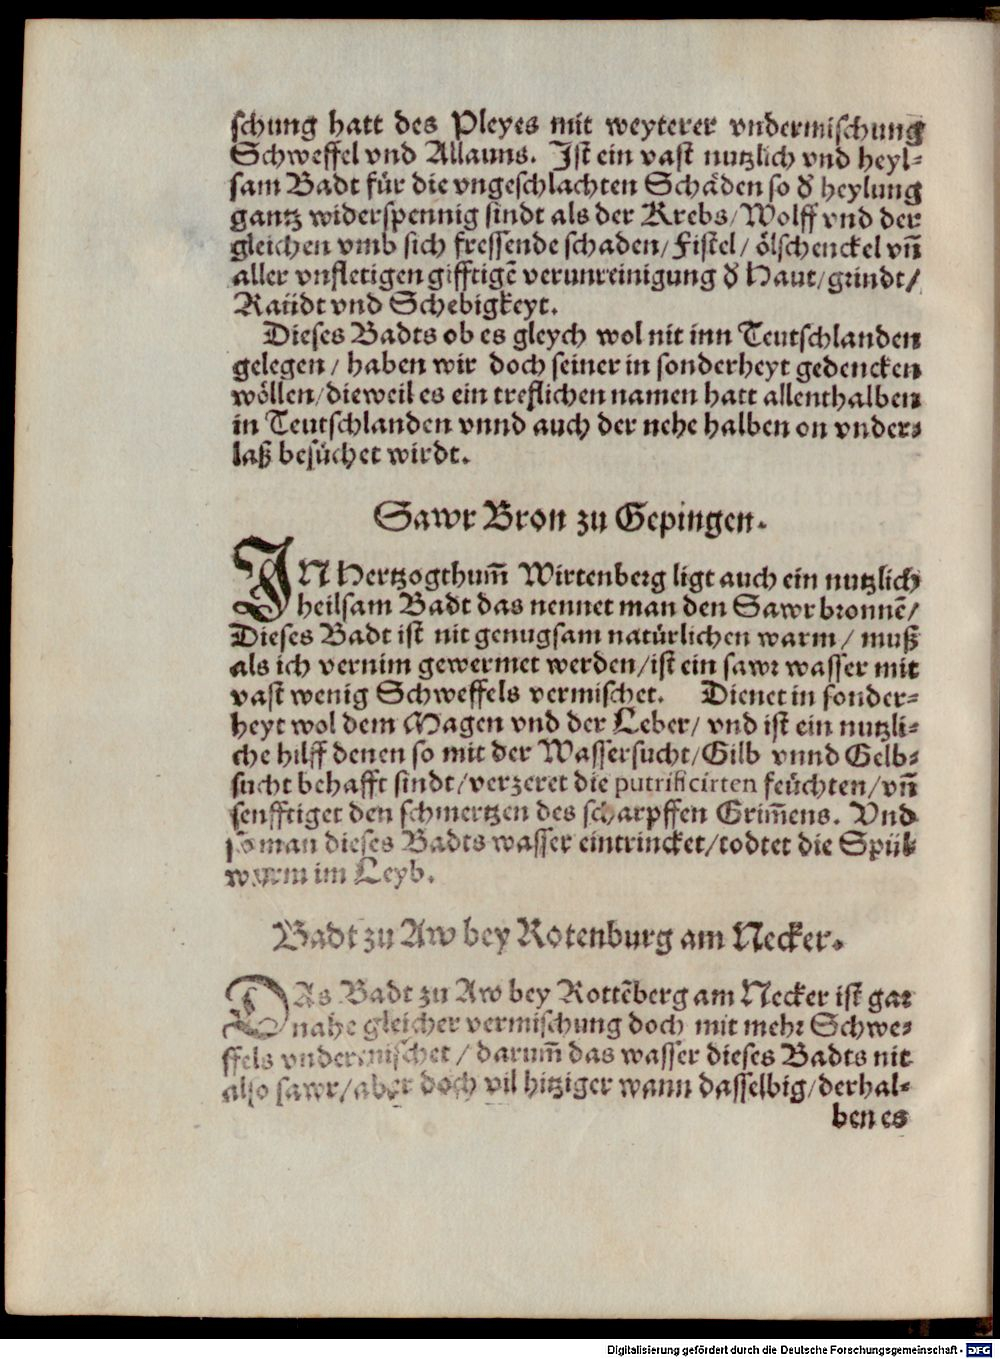 ſchung hatt des Pleyes mit weyterer vndermiſchung
Schweffel vnd Allauns. Iſt ein vaſt nutzlich vnd heyl⸗
ſam Badt für die vngeſchlachten Schäden ſo ð heylung
gantz widerſpennig ſindt als der Krebs/Wolff vnd der
gleichen vmb ſich freſſende ſchaden/Fiſtel/ ölſchenckel vn̄
aller vnfletigen gifftigē verunreinigung ð Haut/grindt/
Raüdt vnd Schebigkeyt.
Dieſes Badts ob es gleych wol nit inn Teutſchlanden
gelegen / haben wir doch ſeiner in ſonderheyt gedencken
wöllen/dieweil es ein treflichen namen hatt allenthalben
in Teutſchlanden vnnd auch der nehe halben on vnder⸗
laß beſüchet wirdt.
Sawr Bron zu Gepingen.
IN Hertzogthum̄ Wirtenberg ligt auch ein nutzlich
heilſam Badt das nennet man den Sawrbronnē/
Dieſes Badt iſt nit genugſam natürlichen warm / muß
als ich vernim gewermet werden/iſt ein ſawr waſſer mit
vaſt wenig Schweffels vermiſchet. Dienet in ſonder⸗
heyt wol dem Magen vnd der Leber/ vnd iſt ein nutzli⸗
che hilff denen ſo mit der Waſſerſucht/Gilb vnnd Gelb⸗
ſucht behafft ſindt/verzeret die putrificirten feüchten/vn̄
ſenfftiget den ſchmertzen des ſcharpffen Grim̄ens. Vnd
ſo man dieſes Badts waſſer eintrincket/todtet die Spül
wurm im Leyb.
Badt zu Aw bey Rotenburg am Necker.
DAs Badt zu Aw bey Rottēberg am Necker iſt gar
nahe gleicher vermiſchung doch mit mehr Schwe⸗
ffels vndermiſchet / darum̄ das waſſer dieſes Badts nit
alſo ſawr/aber doch vil hitziger wann daſſelbig/derhal⸗
ben es
Digitalisierung gefördert durch die Deutsche Forschungsgemeinschaft - DFG